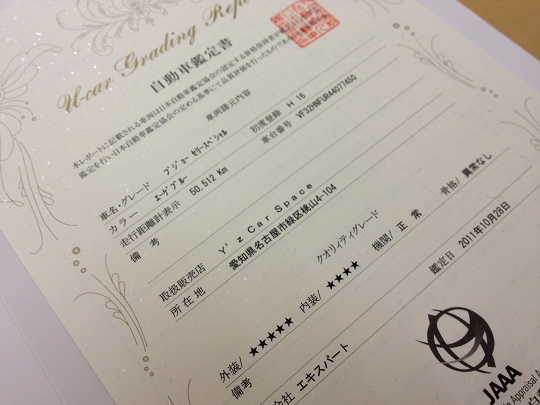 U-car Grading Repo
自動車鑑定書
本レポートに記載される車両は日本自動車鑑定協会の認定する資格保持者が
鑑定を行い日本自動車鑑定協会の定める基準にて品質評価を行ったもので
車両諸元内容
車名・グレード プジョー セリースペシャル 初度登録 H 16
カラー エーゲブルー 車台番号
走行距離計表示 50,512 Km
備考
取扱販売店 Y'z Car Space
所在地 愛知県名古屋市緑区桃山4-104
クオリィティグレード
外装/★★★★★ 内装/★★★★ 機関/正常 骨格/異常なし
備考
鑑定日 2011年10月28日
会社 エキスパート
JAAA
Appraisal A